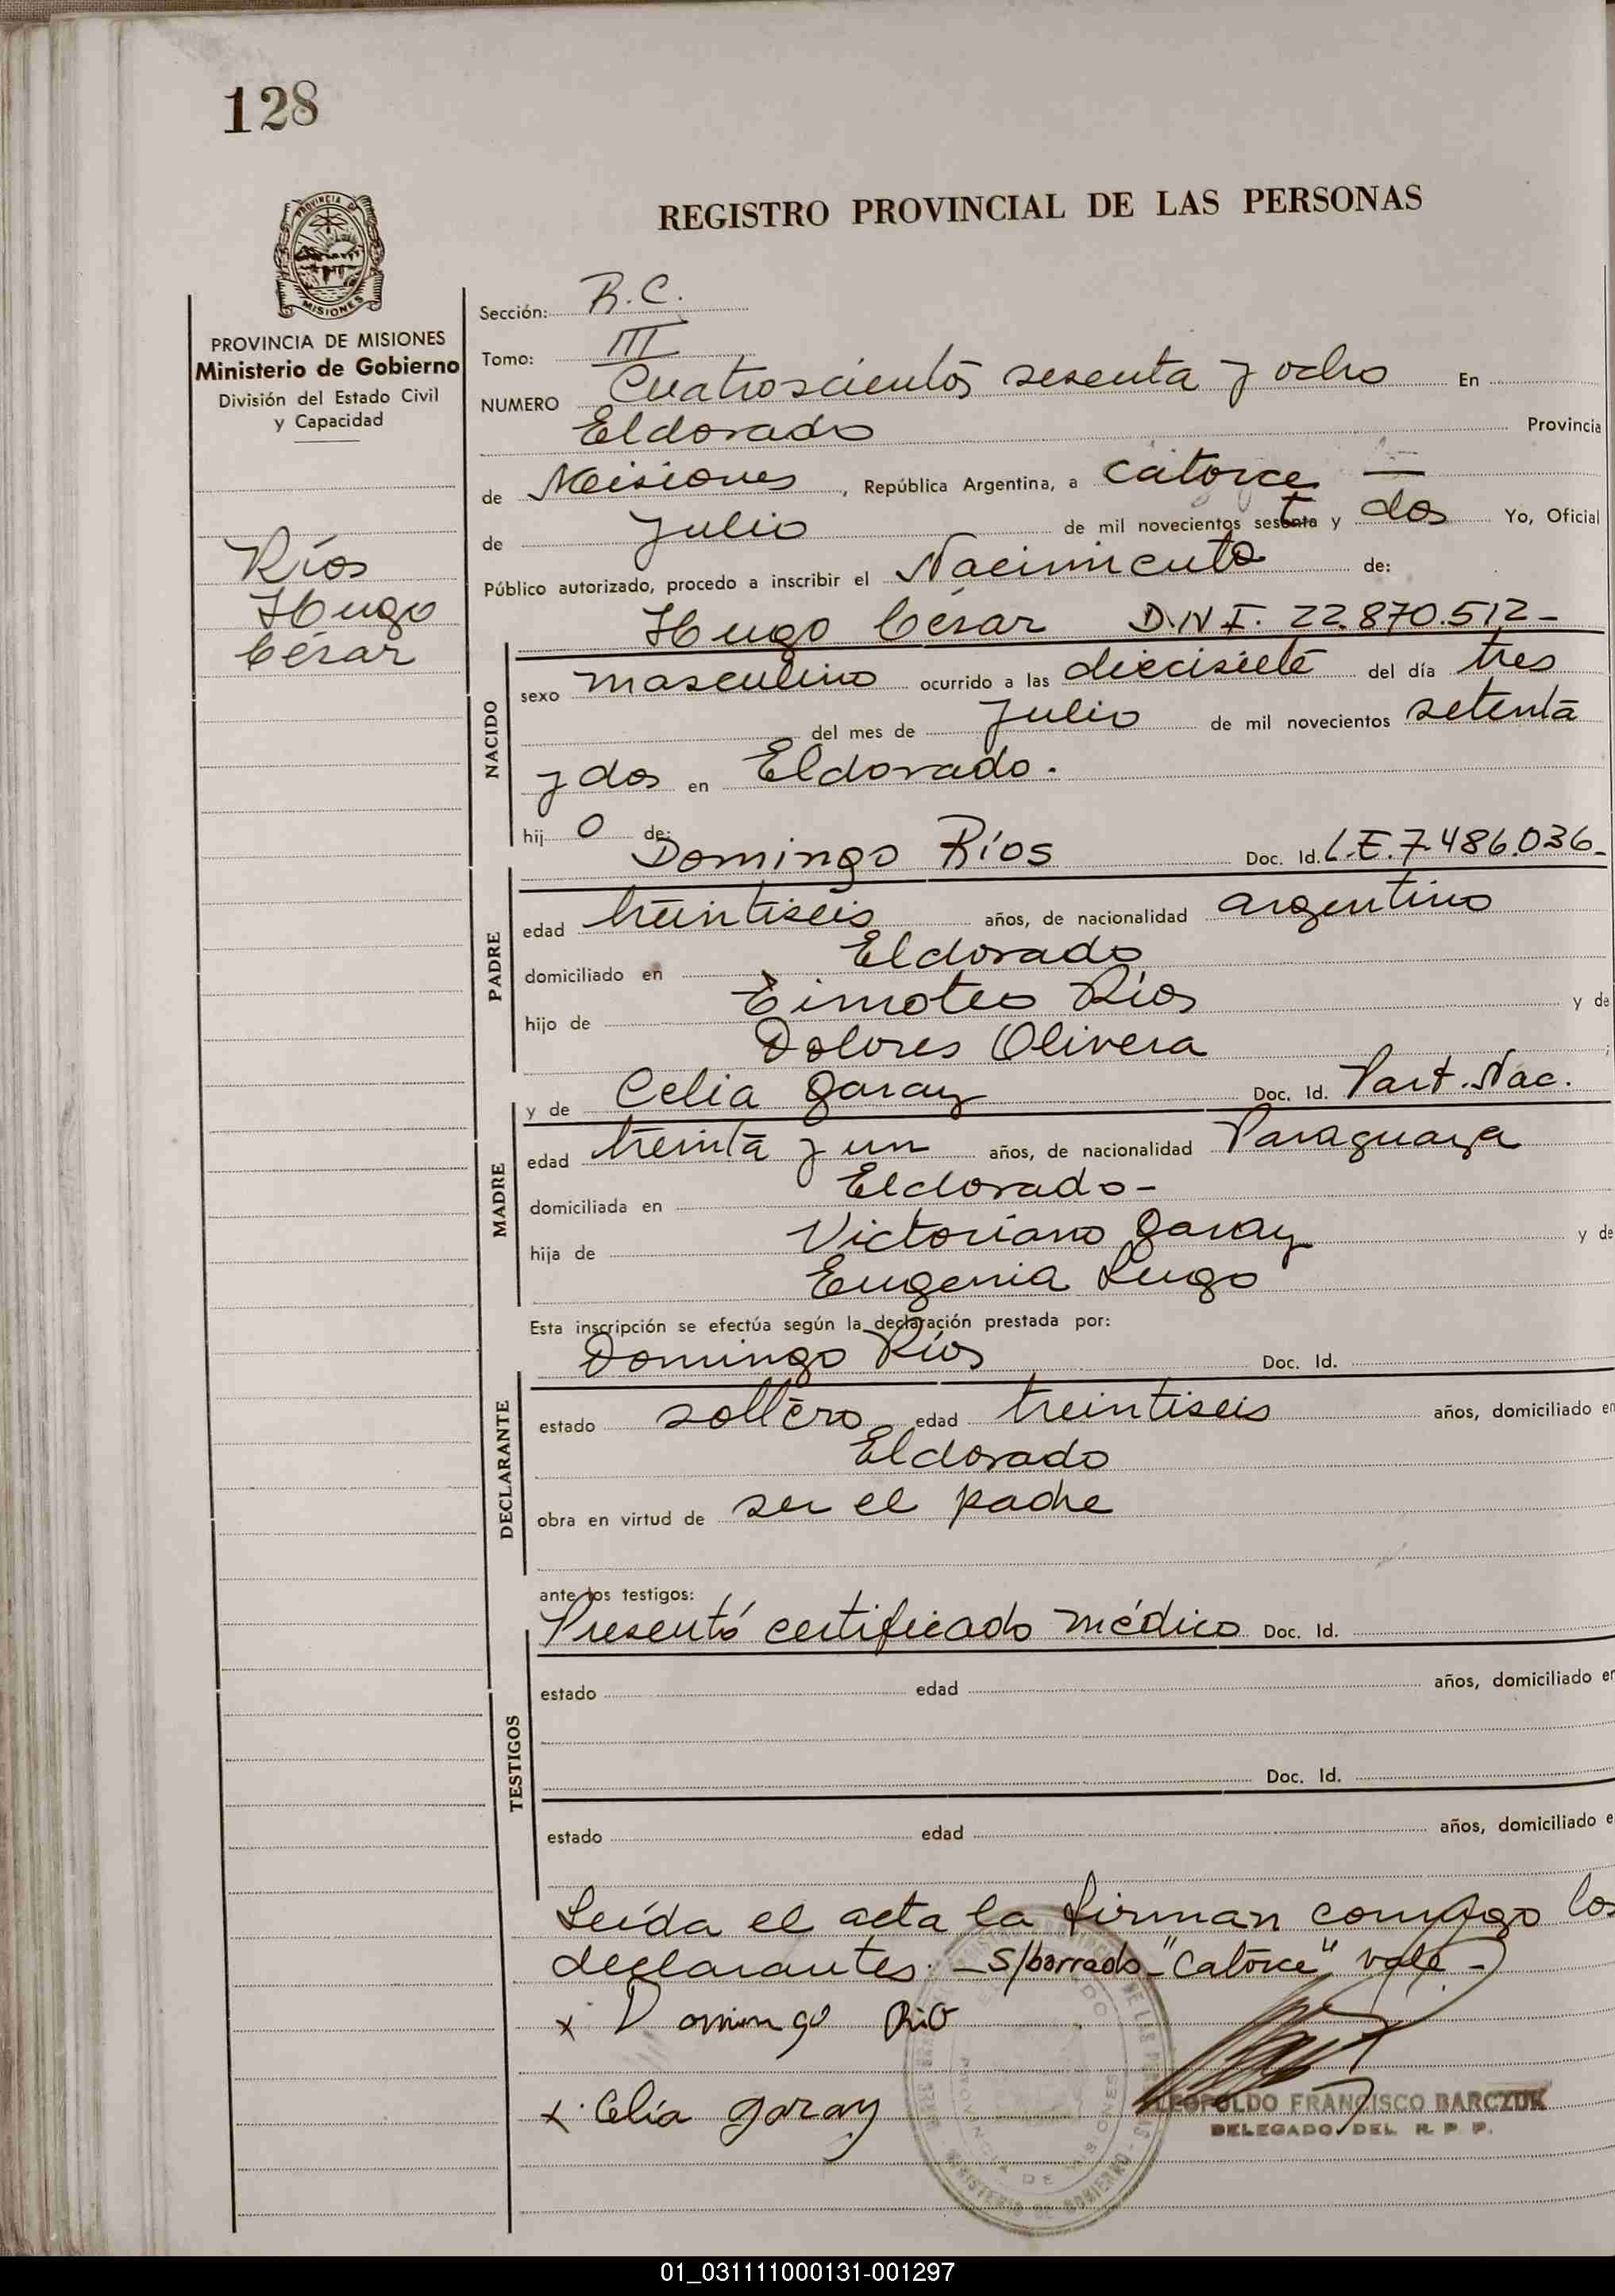 128
REGISTRO PROVINCIAL DE LAS PERSONAS
PROVINCIA DE MISIONES
Ministerio de Gobierno
División del Estado Civil
y Capacidad
Ríos
Hugo
César
Sección: R.C.
Tomo: III
NUMERO Cuatroscientos sesenta y ocho En
Eldorado Provincia
de Misiones, República Argentina, a catorce —
de Julio de mil novecientos setenta y dos Yo, Oficial
Público autorizado, procedo a inscribir el Nacimiento de:
Hugo César D.N.I. 22.870.512-
NACIDO
sexo masculino ocurrido a las diecisiete del día tres
del mes de Julio de mil novecientos setenta
y dos en Eldorado.
hij o de:
Domingo Ríos Doc. Id. L.E. 7.486.036-
PADRE
edad treintiseis años, de nacionalidad argentino
domiciliado en Eldorado
hijo de Timoteo Ríos y de
Dolores Olivera ;
y de Celia Garay Doc. Id. Part. Nac.
MADRE
edad treinta y un años, de nacionalidad Paraguaya
domiciliada en Eldorado-
hija de Victoriano Garay y de
Eugenia Lugo
Esta inscripción se efectúa según la declaración prestada por:
Domingo Ríos Doc. Id.
DECLARANTE
estado soltero edad treintiseis años, domiciliado en
Eldorado
obra en virtud de ser el padre
ante los testigos:
Presentó certificado médico Doc. Id.
TESTIGOS
estado edad años, domiciliado en
Doc. Id.
estado edad años, domiciliado e
Leída el acta la firman conmigo los
declarantes. - S/borrado - "Catorce" vale -
x Domingo Rio
x Celia Garay
LEOPOLDO FRANCISCO BARCZUK
DELEGADO DEL R. P. P.
PROVINCIA DE MISIONES
MINISTERIO DE GOBIERNO
01_031111000131-001297